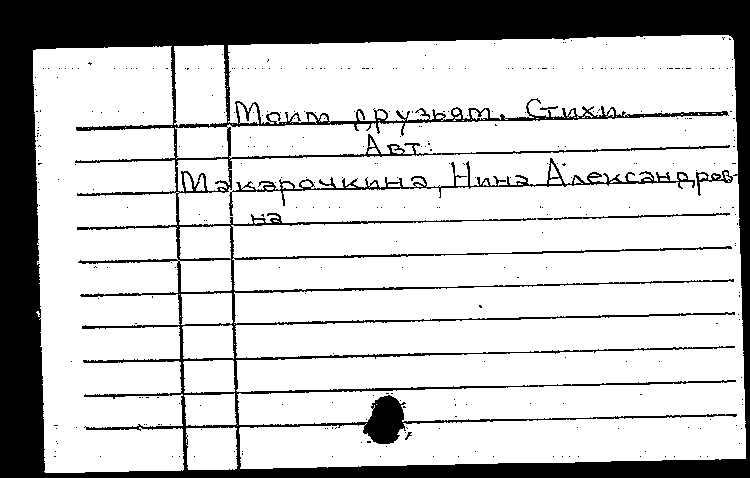 Моим друзьям. Стихи.
Авт.:
Макарочкина, Нина Александров-
на